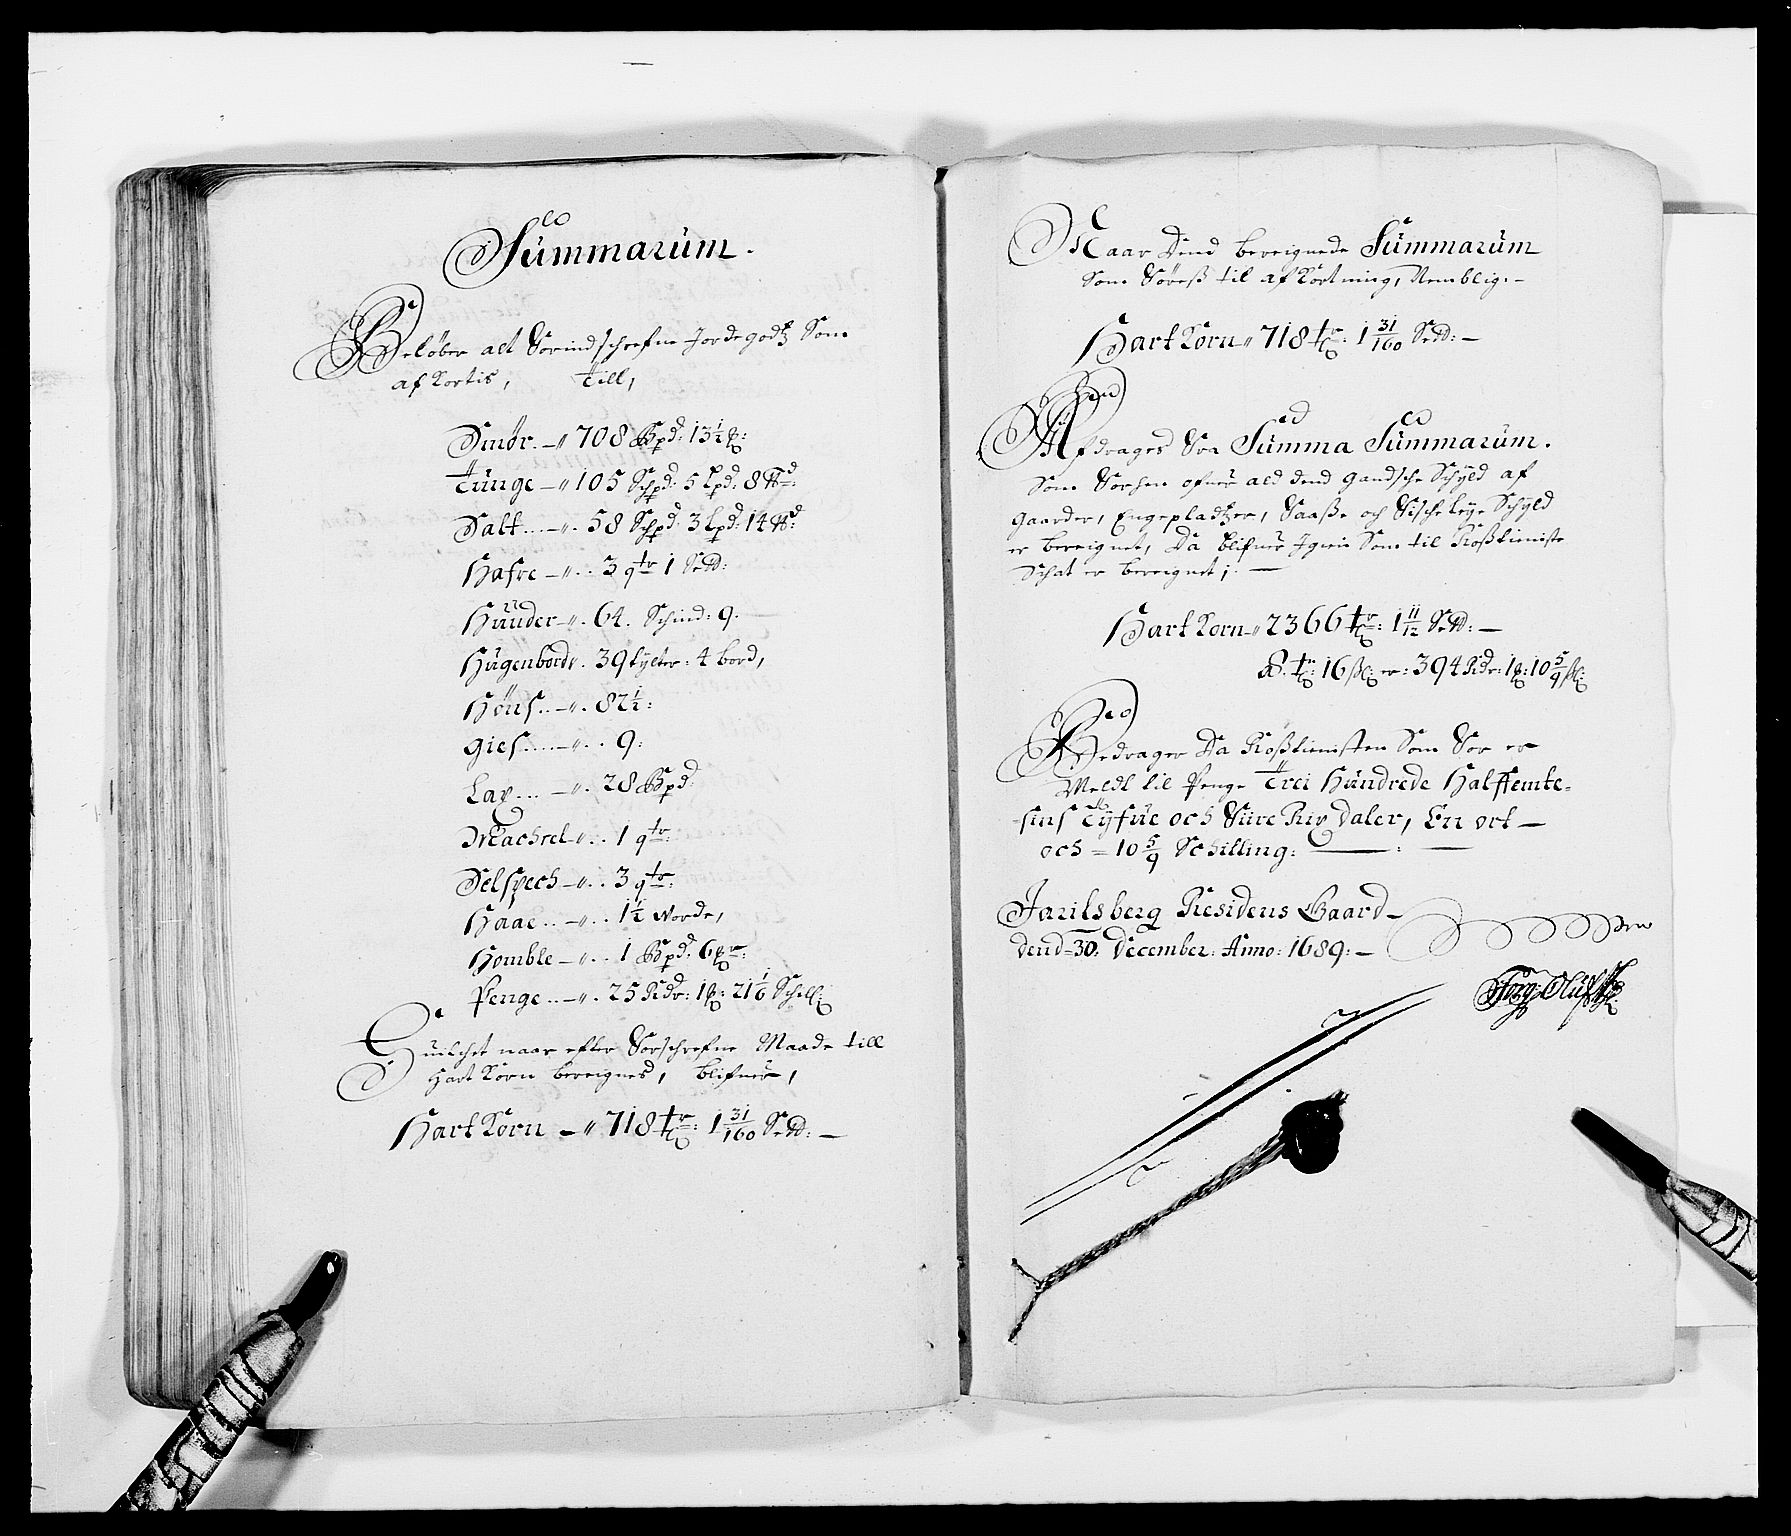 Summarum.
Beløber alt Forindschrefne Jordegodtz Som
afkortis, Till,
Smør – 708 Bpd: 13½ ℔:
Tunge – 105 Schpd: 5 Lpd: 8 ℔d:
Salt – 58 Schpd: 3 Lpd: 14 ℔d:
Hafre – 3 qtr 1 Setd:
Huuder – 64. Schind: 9.
Hugenbord. 39 tylter: 4 bord,
Høns – 82½:
gies – 9:
Lax – 28 Bpd:
Machrel – 1 qtr:
Selspech – 3 qtr:
Haae – 1½ Vorde,
Homble – 1 Bpd: 6
Penge – 25 Rdr: 1 21 1/6 Schill:
Huilchet naar efter Forschrefne Maade till
Hart Korn bereignes, blifuer,
Hart Korn – 718 tr: 1 31/160 Setd: –
Naar Dend bereignede Summarum
Som Føres til afkortning, Nemblig: –
Hart Korn 718 tr: 1 31/160 Setd: –
Afdrages Fra Summa Summarum.
Som Forhen ofuer ald dend gandsche Schyld af
gaarder, Engepladtzer, Saasße och Fischeleye Schyld
er bereignet, Da blifuer Igien Som til Roßtieniste
Schat er bereignet; –
Hart Korn 2366 tr: 1 11/12 Setd: –
tr: 16 ßl: er: 394 Rdr: 1 10 5/9 ßl:
Bedrager Da Roßtienisten Som For er
Meldt til Penge Trei Hundrede Halffemte-
sins Tyfue och Fiire Rix daler, En ort –
och = 10 5/9 Schilling:
Jarilsberg Residens Gaard –
dend 30: December: Anno: 1689: –
Olufß